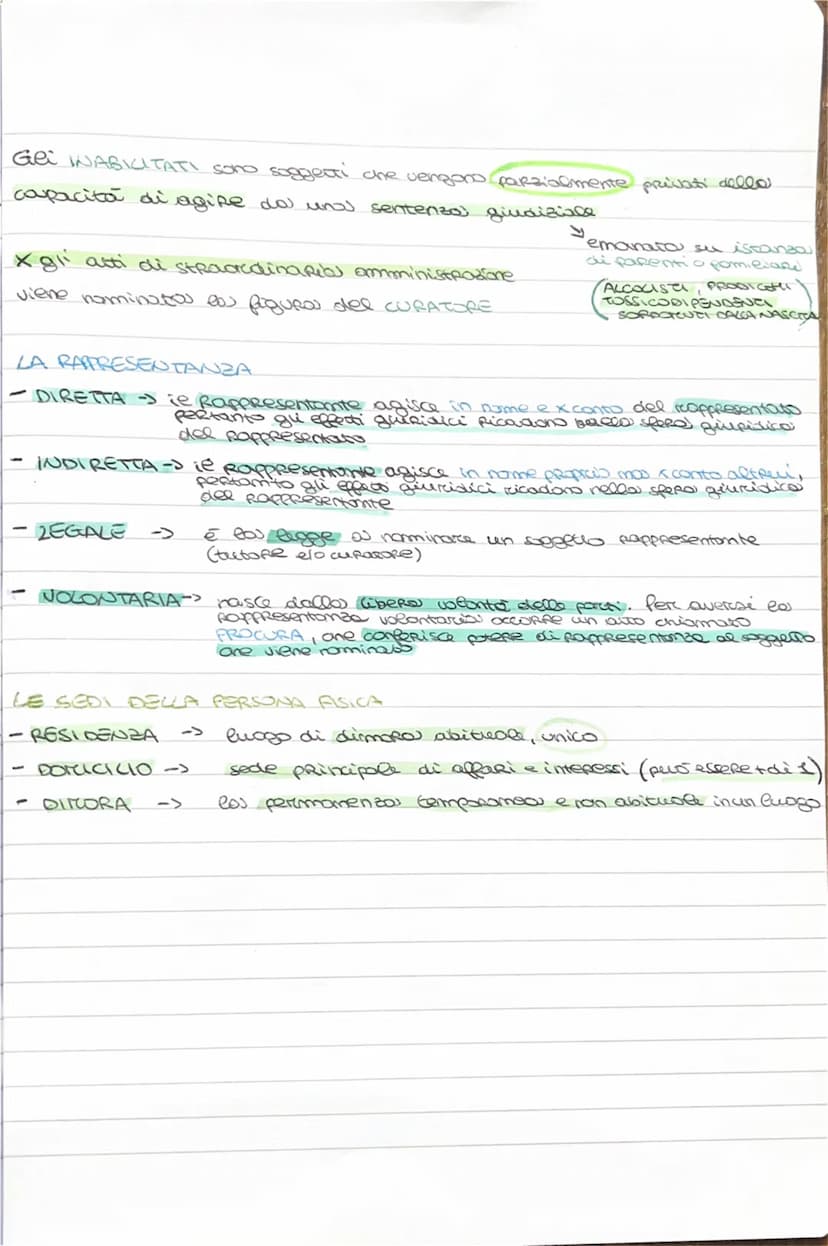 Gli INABILITATI sono soggetti che vengono parzialmente privati della
capacità di agire da una sentenza giudiziale
emanata su istanza
di parenti o familiari
(ALCOLISTI, PRODIGHI
TOSSICODIPENDENTI
SORDOMUTI DALLA NASCITA)
x gli atti di straordinaria amministrazione
viene nominata la figura del CURATORE
LA RAPPRESENTANZA
- DIRETTA -> il Rappresentante agisce in nome e x conto del rappresentato
pertanto gli effetti giuridici ricadono nella sfera giuridica
del rappresentato
- INDIRETTA -> il Rappresentante agisce in nome proprio ma x conto altrui,
pertanto gli effetti giuridici ricadono nella sfera giuridica
del rappresentante
- LEGALE -> è la legge a nominare un soggetto rappresentante
(tutore e/o curatore)
- VOLONTARIA -> nasce dalla libera volontà delle parti. Per aversi la
rappresentanza volontaria occorre un atto chiamato
PROCURA, che conferisce potere di rappresentanza al soggetto
che viene nominato
LE SEDI DELLA PERSONA FISICA
- RESIDENZA -> luogo di dimora abituale, unico
- DOMICILIO -> sede principale di affari e interessi (può essere + di 1)
- DIMORA -> la permanenza temporanea e non abituale in un luogo